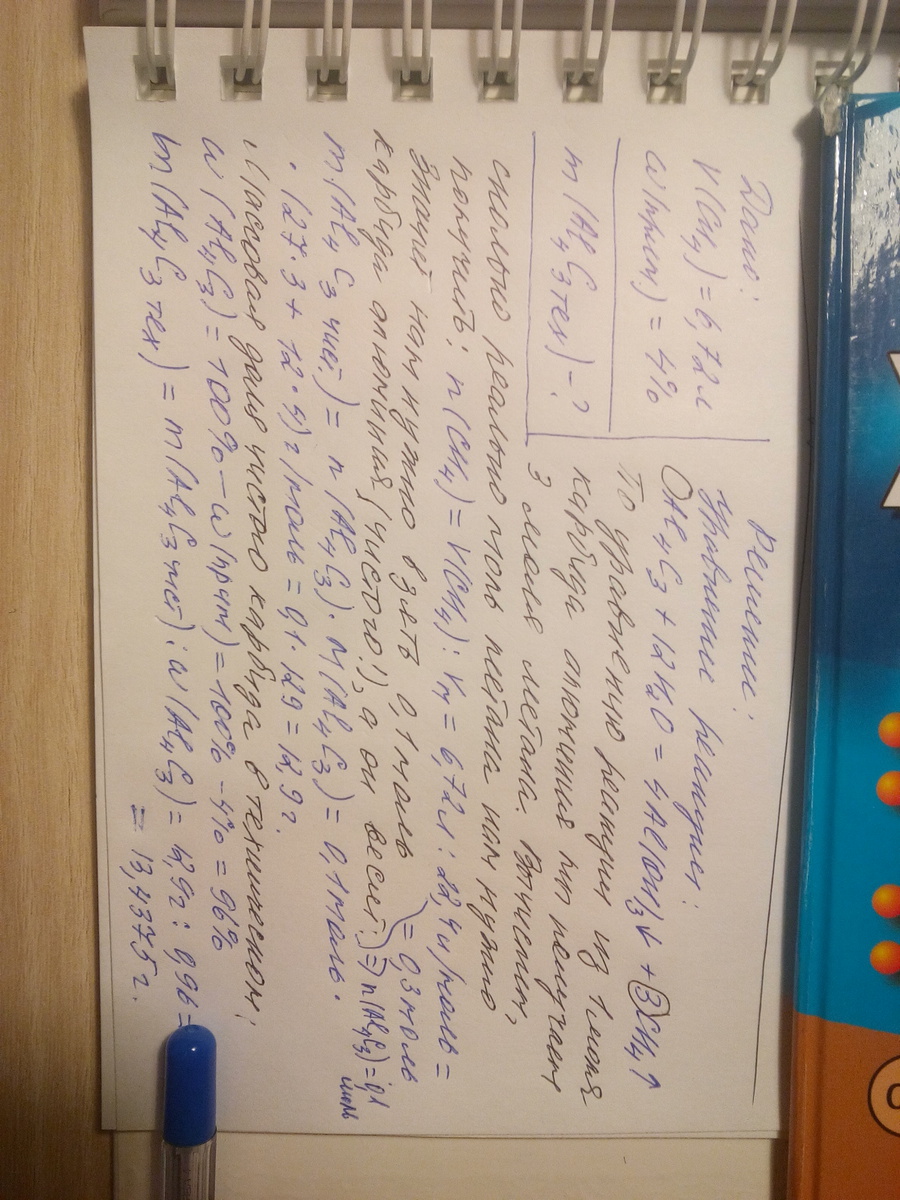 Дано:
V(CH₄) = 6,72л
ω(прим) = 4%
m(Al₄C₃ тех) - ?
Решение:
Уравнение реакции:
Al₄C₃ + 12H₂O = 4Al(OH)₃↓ + 3CH₄↑
По уравнению реакции из 1 моля
карбида алюминия мы получаем
3 моля метана. Вычислим,
сколько реально моль метана нам нужно
получить: n(CH₄) = V(CH₄) : Vм = 6,72л : 22,4л/моль =
= 0,3моль
Значит нам нужно взять 0,1моль
карбида алюминия (чистого!), а он весит: ⇒ n(Al₄C₃) = 0,1
моль
m(Al₄C₃ чист.) = n(Al₄C₃) · M(Al₄C₃) = 0,1моль ·
· (27·3 + 12·4)г/моль = 0,1 · 129 = 12,9г.
Массовая доля чистого карбида в техническом:
ω(Al₄C₃) = 100% - ω(прим) = 100% - 4% = 96%
m(Al₄C₃ тех) = m(Al₄C₃ чист) : ω(Al₄C₃) = 12,9г : 0,96 =
= 13,4375г.